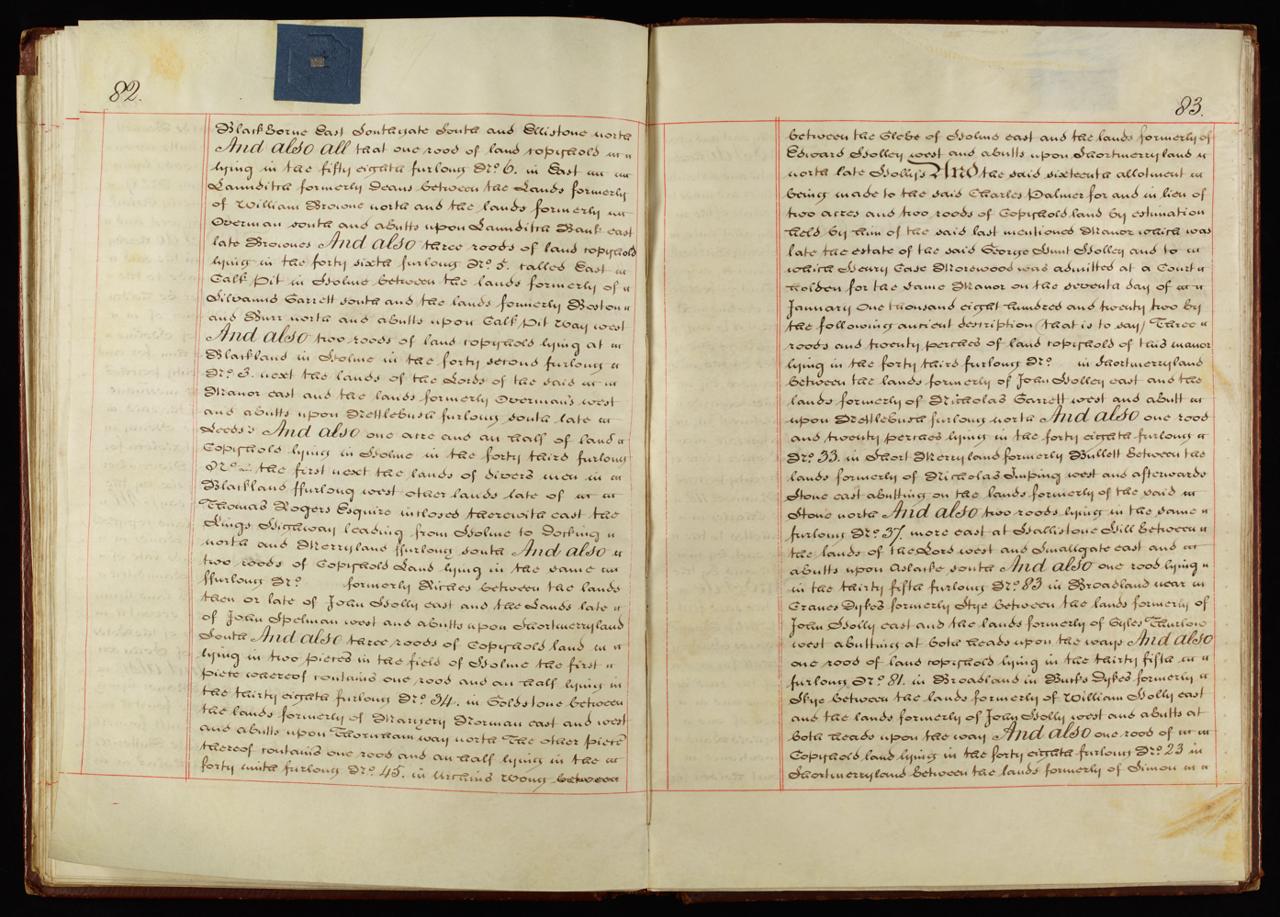 82.
Blackborne East Southgate South and Ellistone north
And also all that one rood of land copyhold
lying in the fifty eighth furlong No. 6. in East
Launditch formerly Deans between the Lands formerly
of William Browne north and the lands formerly
Overman south and abutts upon Launditch Bank east
late Brownes And also three roods of land copyhold
lying in the forty sixth furlong No. 5. called East
Calk Pit in Holme between the lands formerly of
Silvanus Garrett south and the lands formerly Beston
and Burr north and abutts upon Calk Pit way west
And also two roods of land copyhold lying at
Blackland in Holme in the forty second furlong
No. 3. next the lands of the Lords of the said
Manor east and the lands formerly Overman's west
and abutts upon Nettlebush furlong south late
Leeds's And also one acre and an half of land
Copyhold lying in Holme in the forty third furlong
No. the first next the lands of divers men in
Blackland ffurlong west other lands late of
Thomas Rogers Esquire inclosed therewith east the
Kings Highway leading from Holme to Docking
north and Merryland ffurlong south And also
two roods of Copyhold Land lying in the same
ffurlong No. formerly Riches between the lands
then or late of John Holly east and the Lands late
of John Spelman west and abutts upon Shortmerryland
South And also three roods of Copyhold land
lying in two pieces in the field of Holme the first
piece whereof contains one rood and an half lying in
the thirty eighth furlong No. 34. in Goldstone between
the lands formerly of Margery Norman east and west
and abutts upon Thornham way north The other piece
thereof contains one rood and an half lying in the
forty ninth furlong No. 45. in Urchins Wong between
83.
between the Glebe of Holme east and the lands formerly of
Edward Holley west and abutts upon Shortmerryland
north late Holly's And the said sixteenth allotment
being made to the said Charles Palmer for and in lieu of
two acres and two roods of Copyhold land by estimation
held by him of the said last mentioned Manor which was
late the estate of the said George Hunt Holley and to
which Henry Case Morewood was admitted at a Court
holden for the same Manor on the seventh day of
January One thousand eight hundred and twenty two by
the following ancient description (that is to say) Three
roods and twenty perches of land copyhold of this manor
lying in the forty third furlong No. in Shortmerryland
between the lands formerly of John Holley east and the
lands formerly of Nicholas Garrett west and abutt
upon Nettlebush furlong north And also one rood
and twenty perches lying in the forty eighth furlong
No. 33. in Short Merryland formerly Bullett between the
lands formerly of Nicholas Inping west and afterwards
Stone east abutting on the lands formerly of the said
Stone north And also two roods lying in the same
furlong No. 37. more east at Hallistone Hill between
the lands of the Lord west and Smallgate east and
abutts upon Aslacke south And also one rood lying
in the thirty fifth furlong No. 83 in Broadland near
Cranes Dykes formerly Skye between the lands formerly of
John Holly east and the lands formerly of Gyles Thurlow
west abutting at both heads upon the ways And also
one rood of land copyhold lying in the thirty fifth
furlong No. 81. in Broadland in Bucks Dykes formerly
Skye between the lands formerly of William Holly east
and the lands formerly of John Holly west and abutts at
both heads upon the way And also one rood of
Copyhold land lying in the forty eighth furlong No. 23 in
Shortmerryland between the lands formerly of Simon